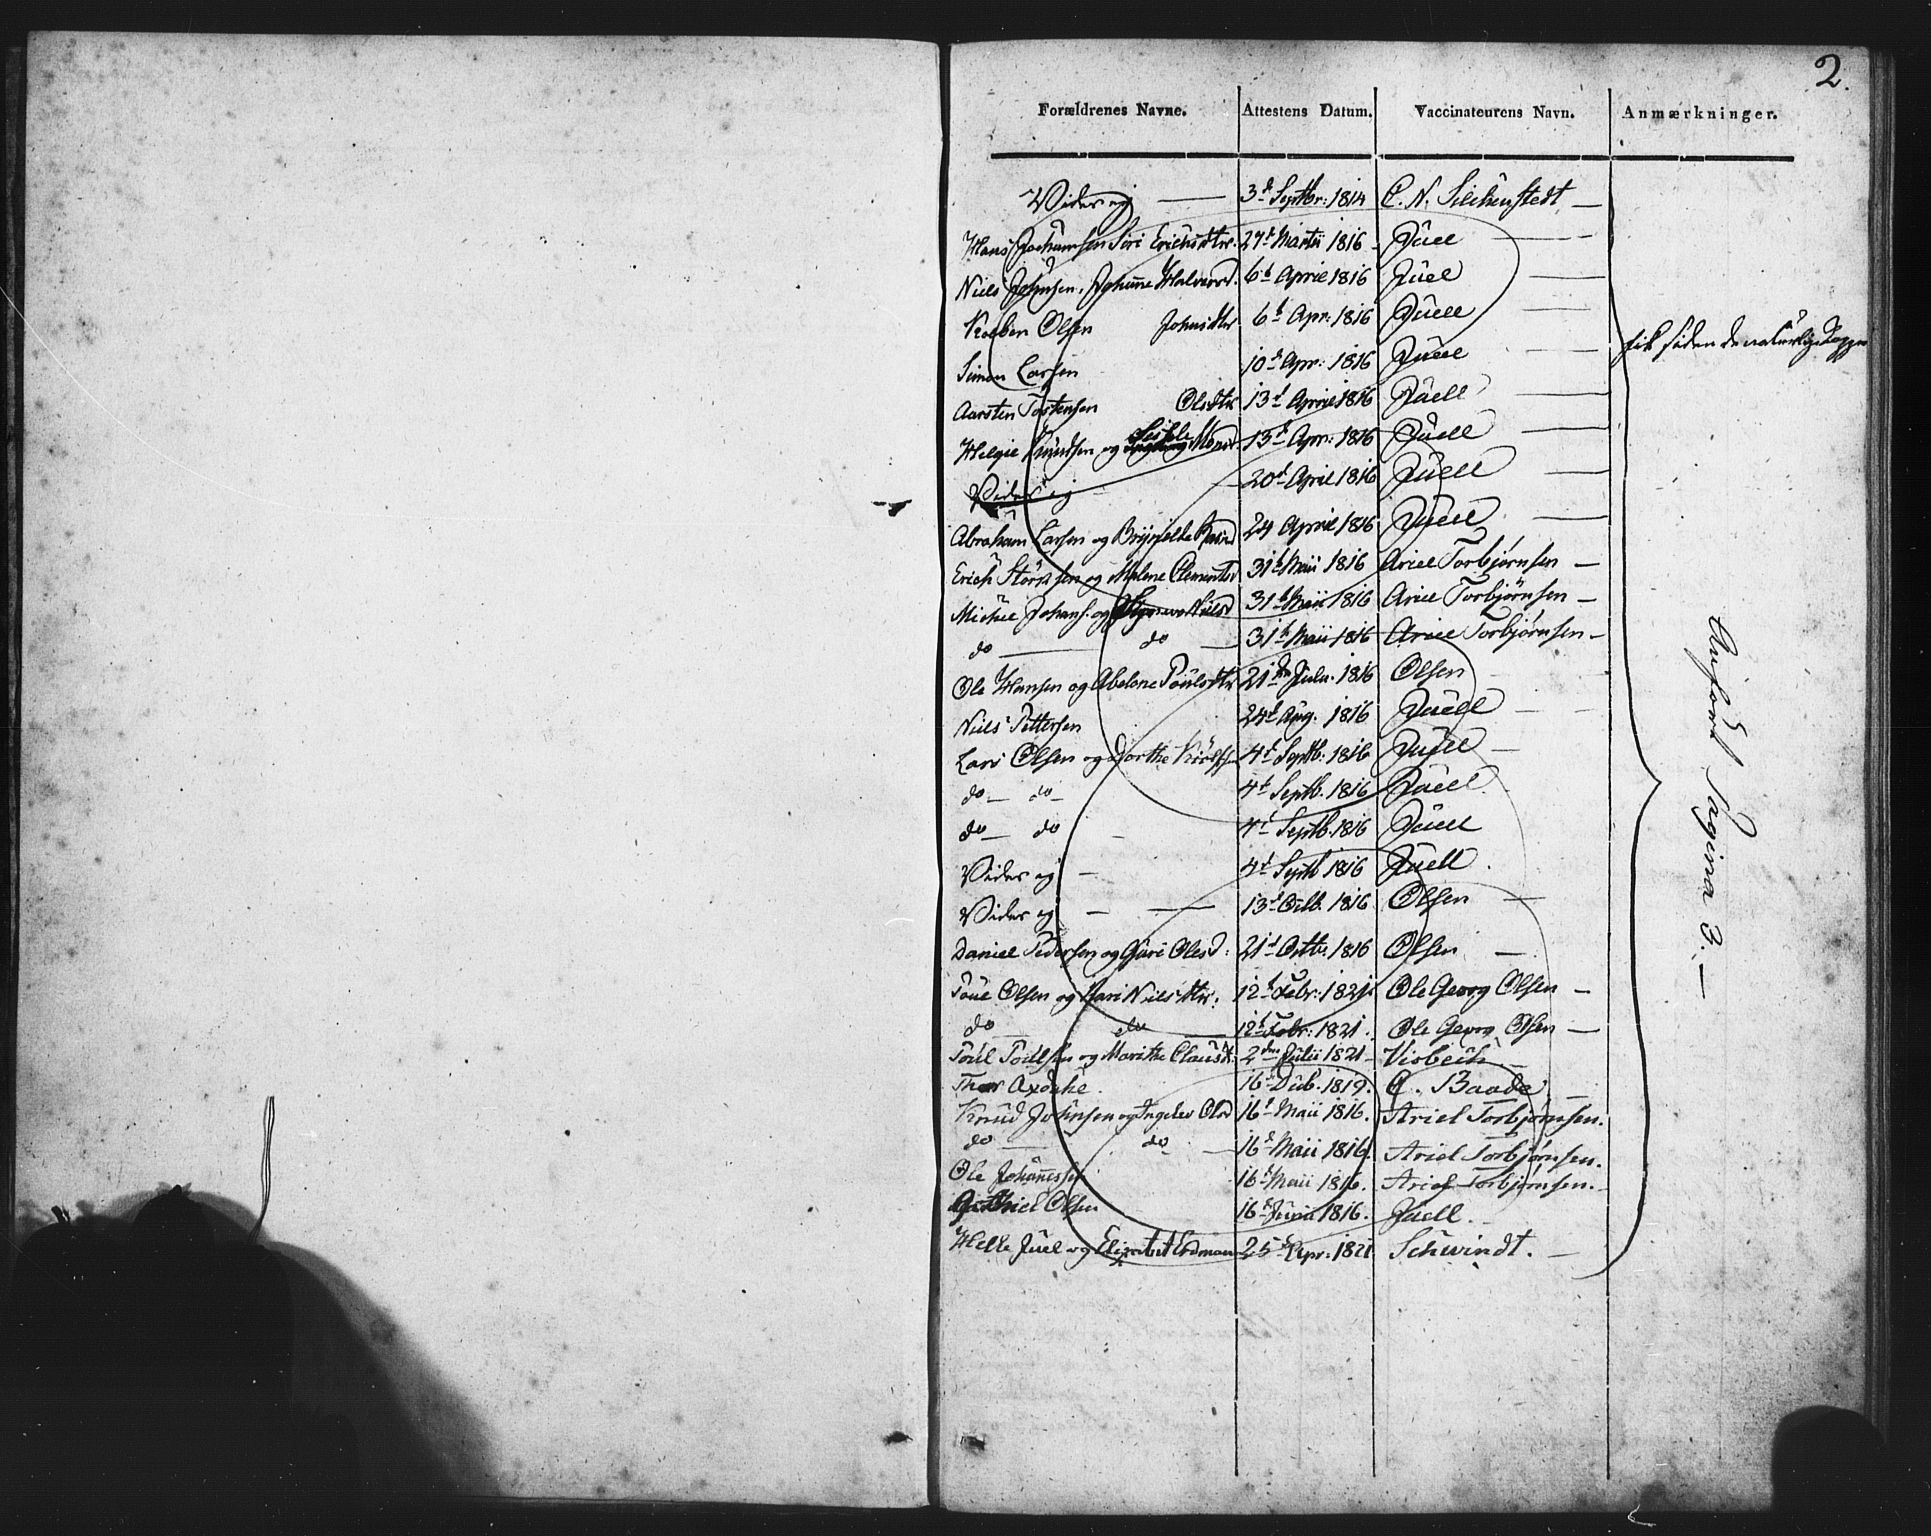 2.
Forældrenes Navne. Attestens Datum. Vaccinateurens Navn. Anmærkninger.
Vides ej — 3d Septbr: 1814 C. N. —
Hans Jochumsen Siri Erichsdtr. 27d Martii 1816 Juell —
Niels Johnsen, Johanne Halvord. 6d April 1816 Juel —
Olsen Johnsdtr 6d Apr: 1816 Juell —
fik siden de naturlige Kopper
Simon Larsen 10d Apr: 1816 Juell —
Aarsten Tostensen Olsdtr 13d April 1816 Juell —
Helgie Knudsen og Monsd. 13d Apr: 1816 Juell —
Vides ej — 20d April 1816 Juell —
Abraham Larsen og 24 April 1816 Juell —
Erich og Malene Clementsd 31d Maii 1816 Ariel Torbjørnsen —
Michel Johans. og Nielsd 31d Maii 1816 Ariel Torbjørnsen —
do — do — 31d Maii 1816 Ariel Torbjørnsen —
Ole Hansen og Abelone Poulsdtr 21de 1816 Olsen
Niels Pettersen 24d Aug. 1816 Juell —
Lars Olsen og Dorthe 4d Septb: 1816 Juell —
do — do — 4d Septb. 1816 Juell.
do — do — 4d Septb. 1816 Juell
Vides ej — 4d Septb 1816 Juell.
Vides ej — — 13d Octb. 1816 Olsen —
Daniel Pedersen og Guri Olesd: 21d Octbr. 1816 Olsen —
Poul Olsen og Kari Nielsdtr. 12d Febr: 1821. Ole Georg Olsen —
do — do — 12d Febr: 1821. Ole Georg Olsen —
Poul Poulsen og Marithe Clausd: 2den Julii 1821 —
16d Decb. 1819. C. Baade —
Knud Johnsen og Olsd 16d Maii 1816. Ariel Torbjørnsen.
do — do — 16d Maii 1816. Ariel Torbjørnsen.
Ole Johannessen 16d Maii 1816. Ariel Torbjørnsen.
Gabriel Olsen 16d Junii 1816. Juell. —
Helle Juel og Elisabet Erdman 25d Apr: 1821 Schwindt. —
Anført Pagina 3. —